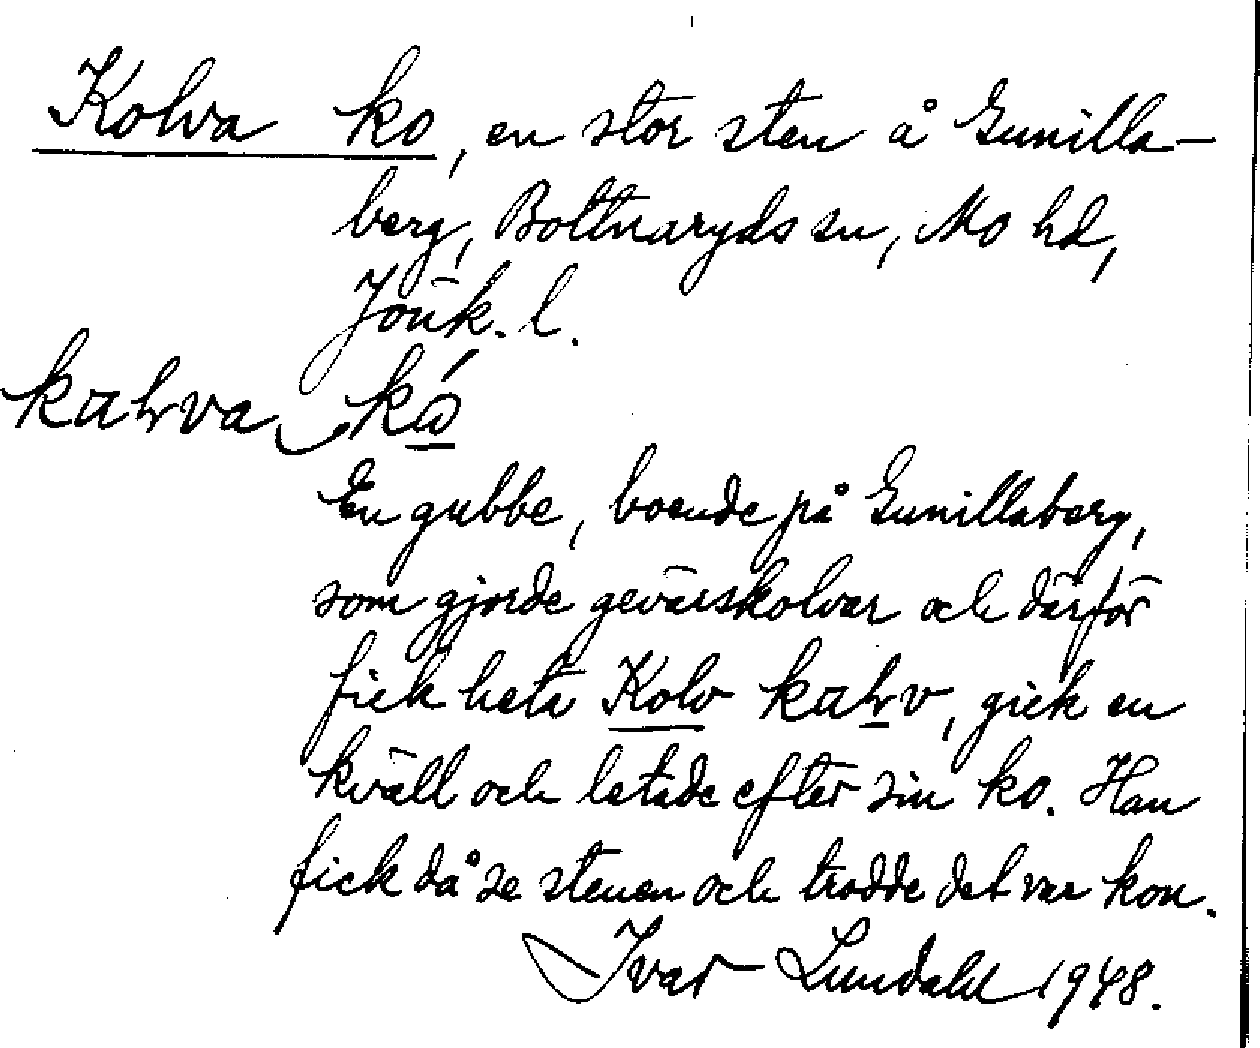 Kolva ko, en stor sten å Gunilla-
berg, Bottnaryds sn, Mo hd,
Jönk. l.
En gubbe, boende på Gunillaberg,
som gjorde gevärskolvar och därför
fick heta Kolv kaƚv, gick en
kväll och letade efter sin ko. Han
fick då se stenen och trodde det var kon.
Ivar Lundahl 1948.